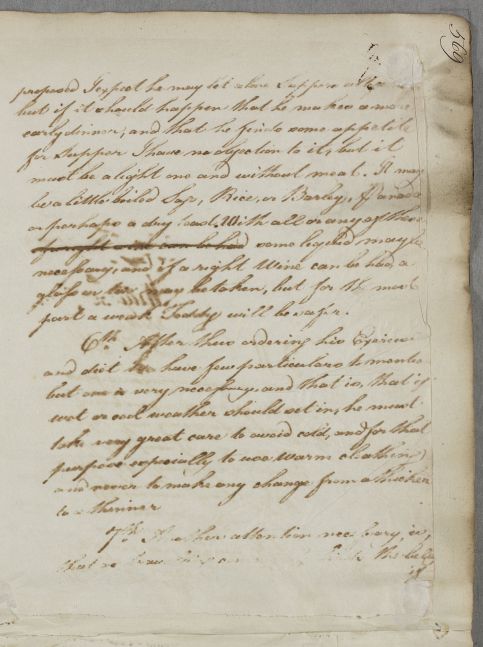 569
proposed I expect he may let alone Supper
but if it should happen that he makes a more
early dinner, and that he finds some appetite
for Supper I have no objection to it, but it
must be a light one and without meat. It may
be a little boiled Sago, Rice, or Barley, Panado
or perhaps a dry bread. With all or any of these
some liquid may be
necessary, and if a right Wine can be had, a
glass or two may be taken, but for the most
part a weak Toddy will be safer.
6th. After thus ordering his Exercise
and diet I have few particulars to mention
but one is very necessary, and that is, that if
wet or cool weather should set in, he must
take very great care to avoid cold, and for that
purpose especially to use warm cloathing
and never to make any change from a thicker
to a thinner
7th. Another attention necessary, is,
that no the belly
if